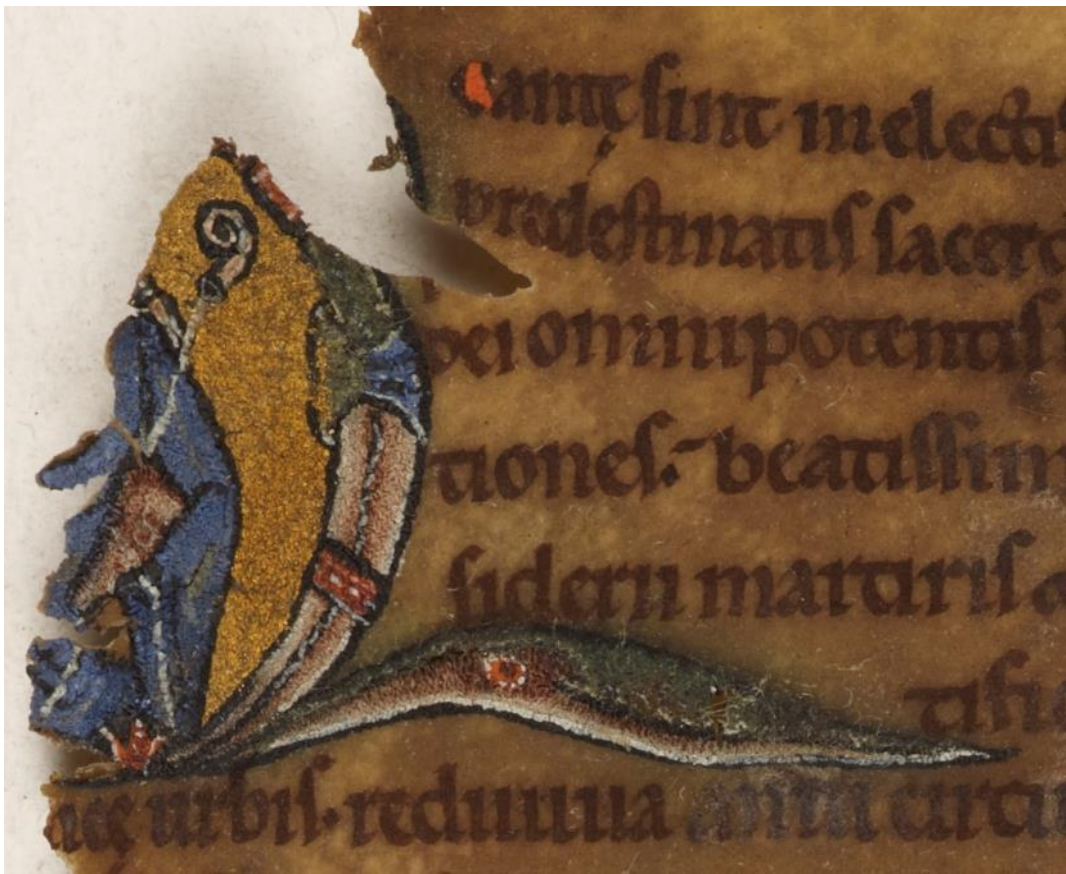 Cantę sunt in electis
predestinatis sacerd
dei omnipotentis
tiones. beatissim
siderii martiris a
tisti
urbis. rediuiua annu circu